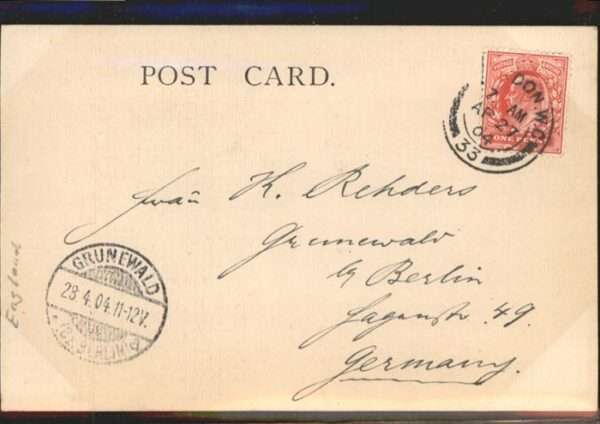 POST CARD.
DON.W.C.
7 AM
AP 27
04
33
ONE
Frau K. Rehders
Grunewald
b/ Berlin
Hagenstr. 49.
Germany.
GRUNEWALD
28.4.04.11-12V.
England